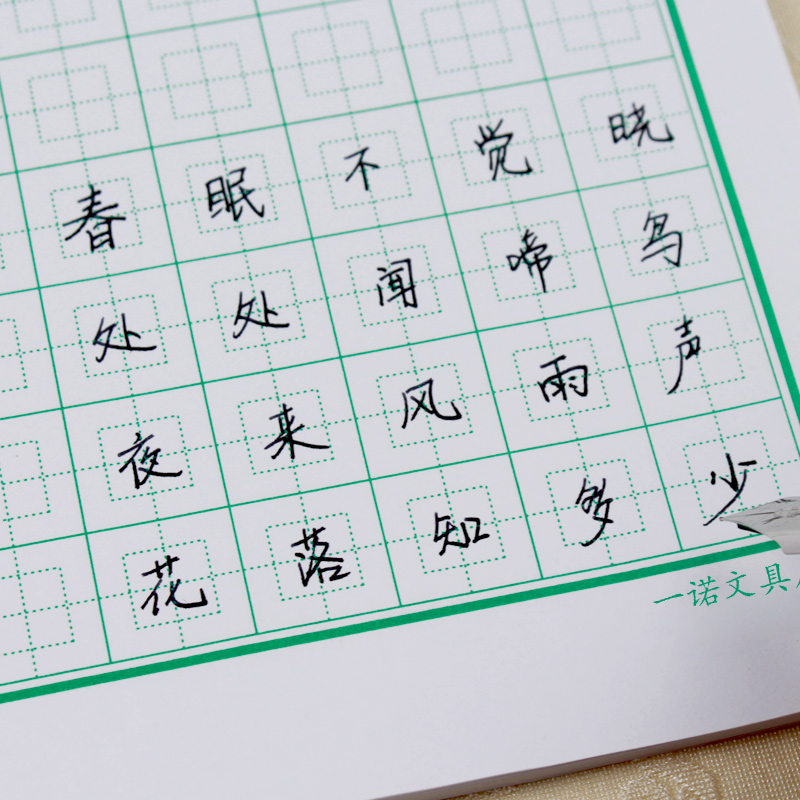 春眠不觉晓
处处闻啼鸟
夜来风雨声
花落知多少
一诺文具